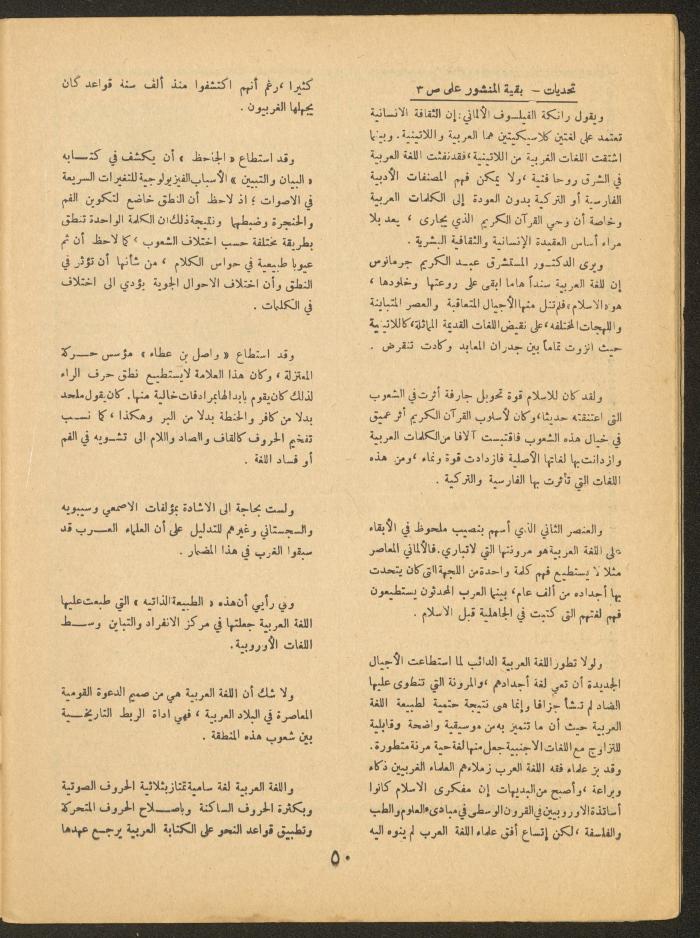 تحديات – بقية المنشور على ص ٣
ويقول رانكة الفيلسوف الألماني: إن الثقافة الانسانية
تعتمد على لغتين كلاسيكيتين هما العربية واللاتينية. وبينما
اشتقت اللغات الغربية من اللاتينية، فقد نفثت اللغة العربية
في الشرق روحا فنية، ولا يمكن فهم المصنفات الأدبية
الفارسية أو التركية بدون العودة إلى الكلمات العربية
وخاصة أن وحي القرآن الكريم الذي يجارى، يعد بلا
مراء أساس العقيدة الإنسانية والثقافية البشرية.
ويرى الدكتور المستشرق عبد الكريم جرمانوس
إن للغة العربية سنداً هاما ابقى على روعتها وخلودها،
هو «الاسلام» فلم تنل منها الأجيال المتعاقبة والعصر المتباينة
واللهجات المختلفه، على نقيض اللغات القديمة المماثلة، كاللاتينية
حيث انزوت تماماً بين جدران المعابد وكادت تنقرض.
ولقد كان للاسلام قوة تحويل جارفة أثرت في الشعوب
التى اعتنقته حديثا، وكان لأسلوب القرآن الكريم أثر عميق
في خيال هذه الشعوب فاقتبست آلافا من الكلمات العربية
وازدانت بها لغاتها الأصلية فازدادت قوة ونماء، ومن هذه
اللغات التي تأثرت بها الفارسية والتركية.
والعنصر الثاني الذي أسهم بنصيب ملحوظ في الأبقاء
على اللغة العربية هو مرونتها التي لاتبارى. فالألماني المعاصر
مثلا لا يستطيع فهم كلمة واحدة من اللجهة التى كان يتحدث
بها أجداده من ألف عام، بينما العرب المحدثون يستطيعون
فهم لغتهم التى كتبت في الجاهلية قبل الاسلام.
ولولا تطور اللغة العربية الدائب لما استطاعت الأجيال
الجديدة أن تعي لغة أجدادهم، والمرونة التي تنطوى عليها
الضاد لم تنشأ جزافا وإنما هى نتيجة حتمية لطبيعة اللغة
العربية حيث أن ما تتميز به من موسيقية واضحة وقابلية
للتزاوج مع اللغات الاجنبية جعل منها لغة حية مرنة متطورة.
وقد بز علماء فقه اللغة العرب زملاءهم العلماء الغربيين ذكاء
وبراعة، وأصبح من البديهات إن مفكرى الاسلام كانوا
أساتذة الاوروبيين في القرون الوسطى في مبادىء العلوم والطب
والفلسفة، لكن إتساع أفق علماء اللغة العرب لم ينوه اليه
كثيرا، رغم أنهم اكتشفوا منذ ألف سنة قواعد كان
يجهلها الغربيون.
وقد استطاع «الجاحظ» أن يكشف في كتابه
«البيان والتبيين» الأسباب الفيزيولوجية للتغيرات السريعة
في الاصوات؛ اذ لاحظ أن النطق خاضع لتكوين الفم
والحنجرة وضبطها ونتيجة ذلك ان الكلمة الواحدة تنطق
بطريقة مختلفة حسب اختلاف الشعوب، كما لاحظ أن ثم
عيوبا طبيعية في حواس الكلام، من شأنها أن تؤثر في
النطق وأن اختلاف الاحوال الجوية يؤدي الى اختلاف
في الكلمات.
وقد استطاع «واصل بن عطاء» مؤسس حركة
المعتزلة، وكان هذا العلامة لايستطيع نطق حرف الراء
لذلك كان يقوم بابدالها بمرادفات خالية منها. كان يقول ملحد
بدلا من كافر والحنطة بدلا من البر وهكذا، كما نسب
تفخيم الحروف كالقاف والصاد واللام الى تشويه في الفم
أو فساد اللغة.
ولست بحاجة الى الاشادة بمؤلفات الاصمعي وسيبويه
والسجستاني وغيرهم للتدليل على أن العلماء العرب قد
سبقوا الغرب في هذا المضمار.
وفي رأيي أن هذه «الطبيعة الذاتيه» التي طبعت عليها
اللغة العربية جعلتها في مركز الانفراد والتباين وسط
اللغات الأوروبية.
ولا شك أن اللغة العربية هي من صميم الدعوة القومية
المعاصرة في البلاد العربية، فهي اداة الربط التاريخية
بين شعوب هذه المنطقة.
واللغة العربية لغة سامية تمتاز بثلاثية الحروف الصوتية
وبكثرة الحروف الساكنة وباصلاح الحروف المتحركة
وتطبيق قواعد النحو على الكتابة العربية يرجع عهدها
٥٠